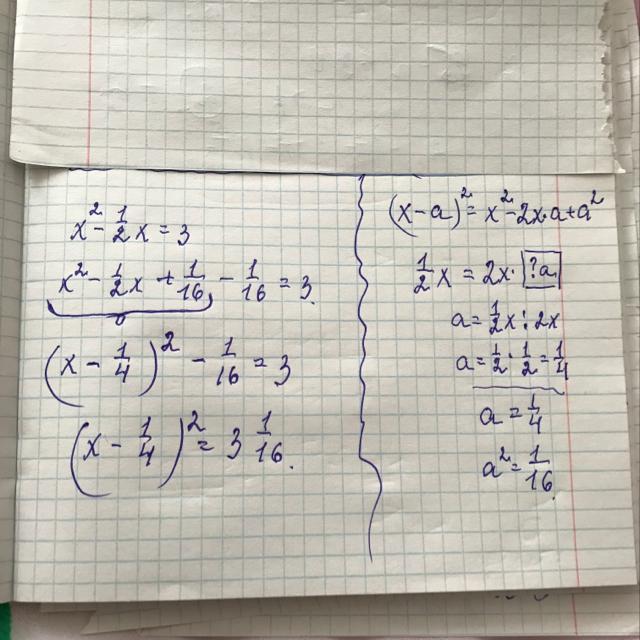 x² - 1/2 x = 3
x² - 1/2 x + 1/16 - 1/16 = 3.
(x - 1/4)² - 1/16 = 3
(x - 1/4)² = 3 1/16.
(x - a)² = x² - 2x·a + a²
1/2 x = 2x · ?a
a = 1/2 x : 2x
a = 1/2 · 1/2 = 1/4
a = 1/4
a² = 1/16